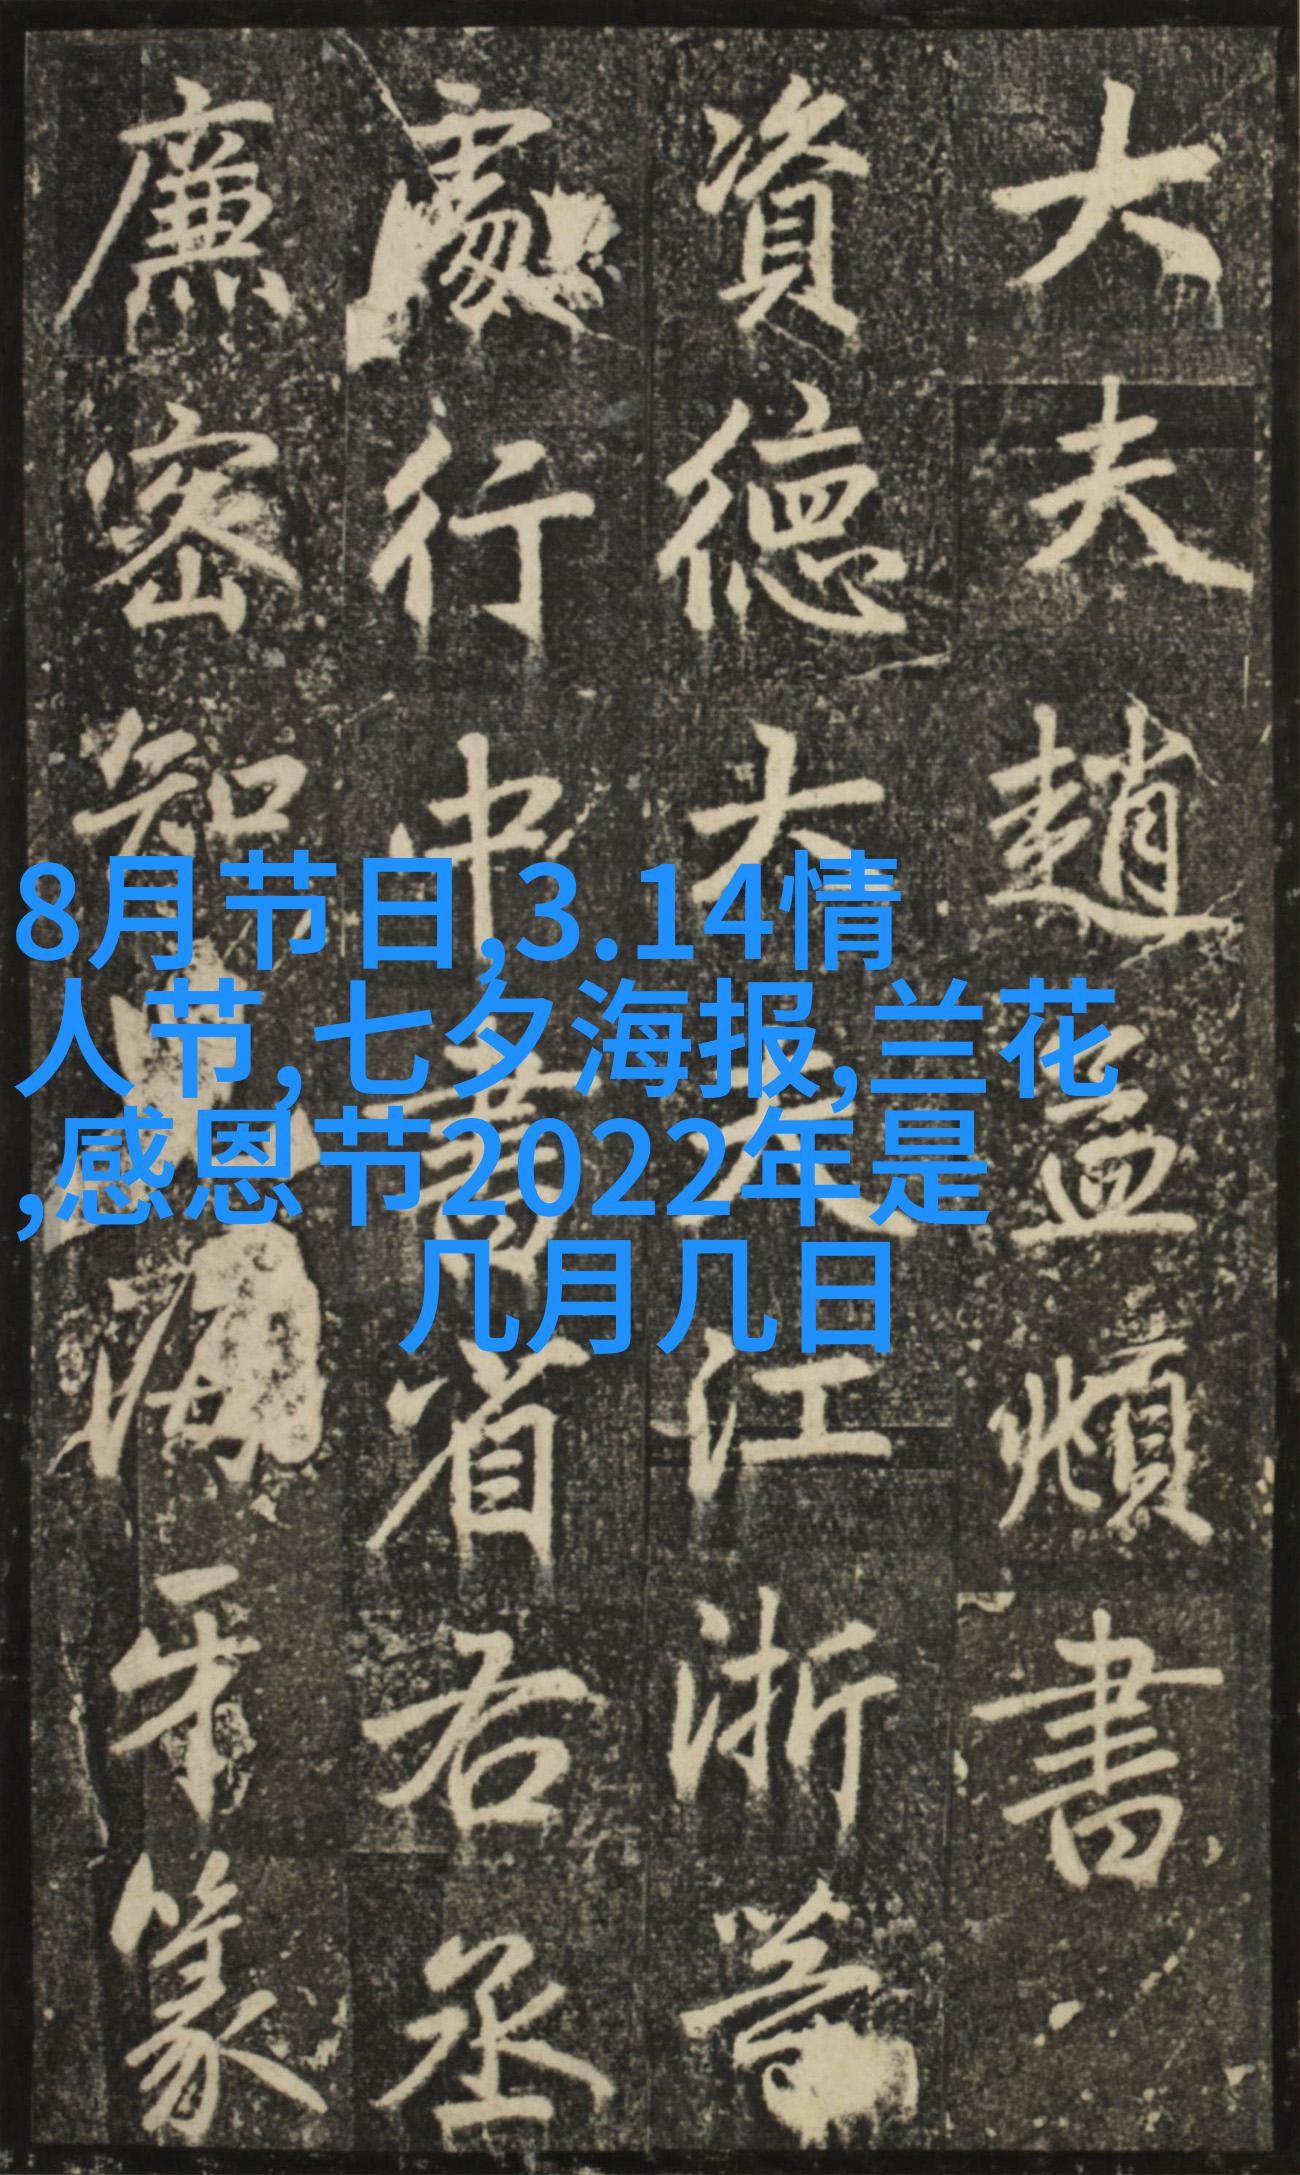 大夫趙孟頫書
資德大夫江浙等
處行中書省右丞
廉密知海牙篆
8月节日,3.14情
人节,七夕海报,兰花
,感恩节2022年是
几月几日